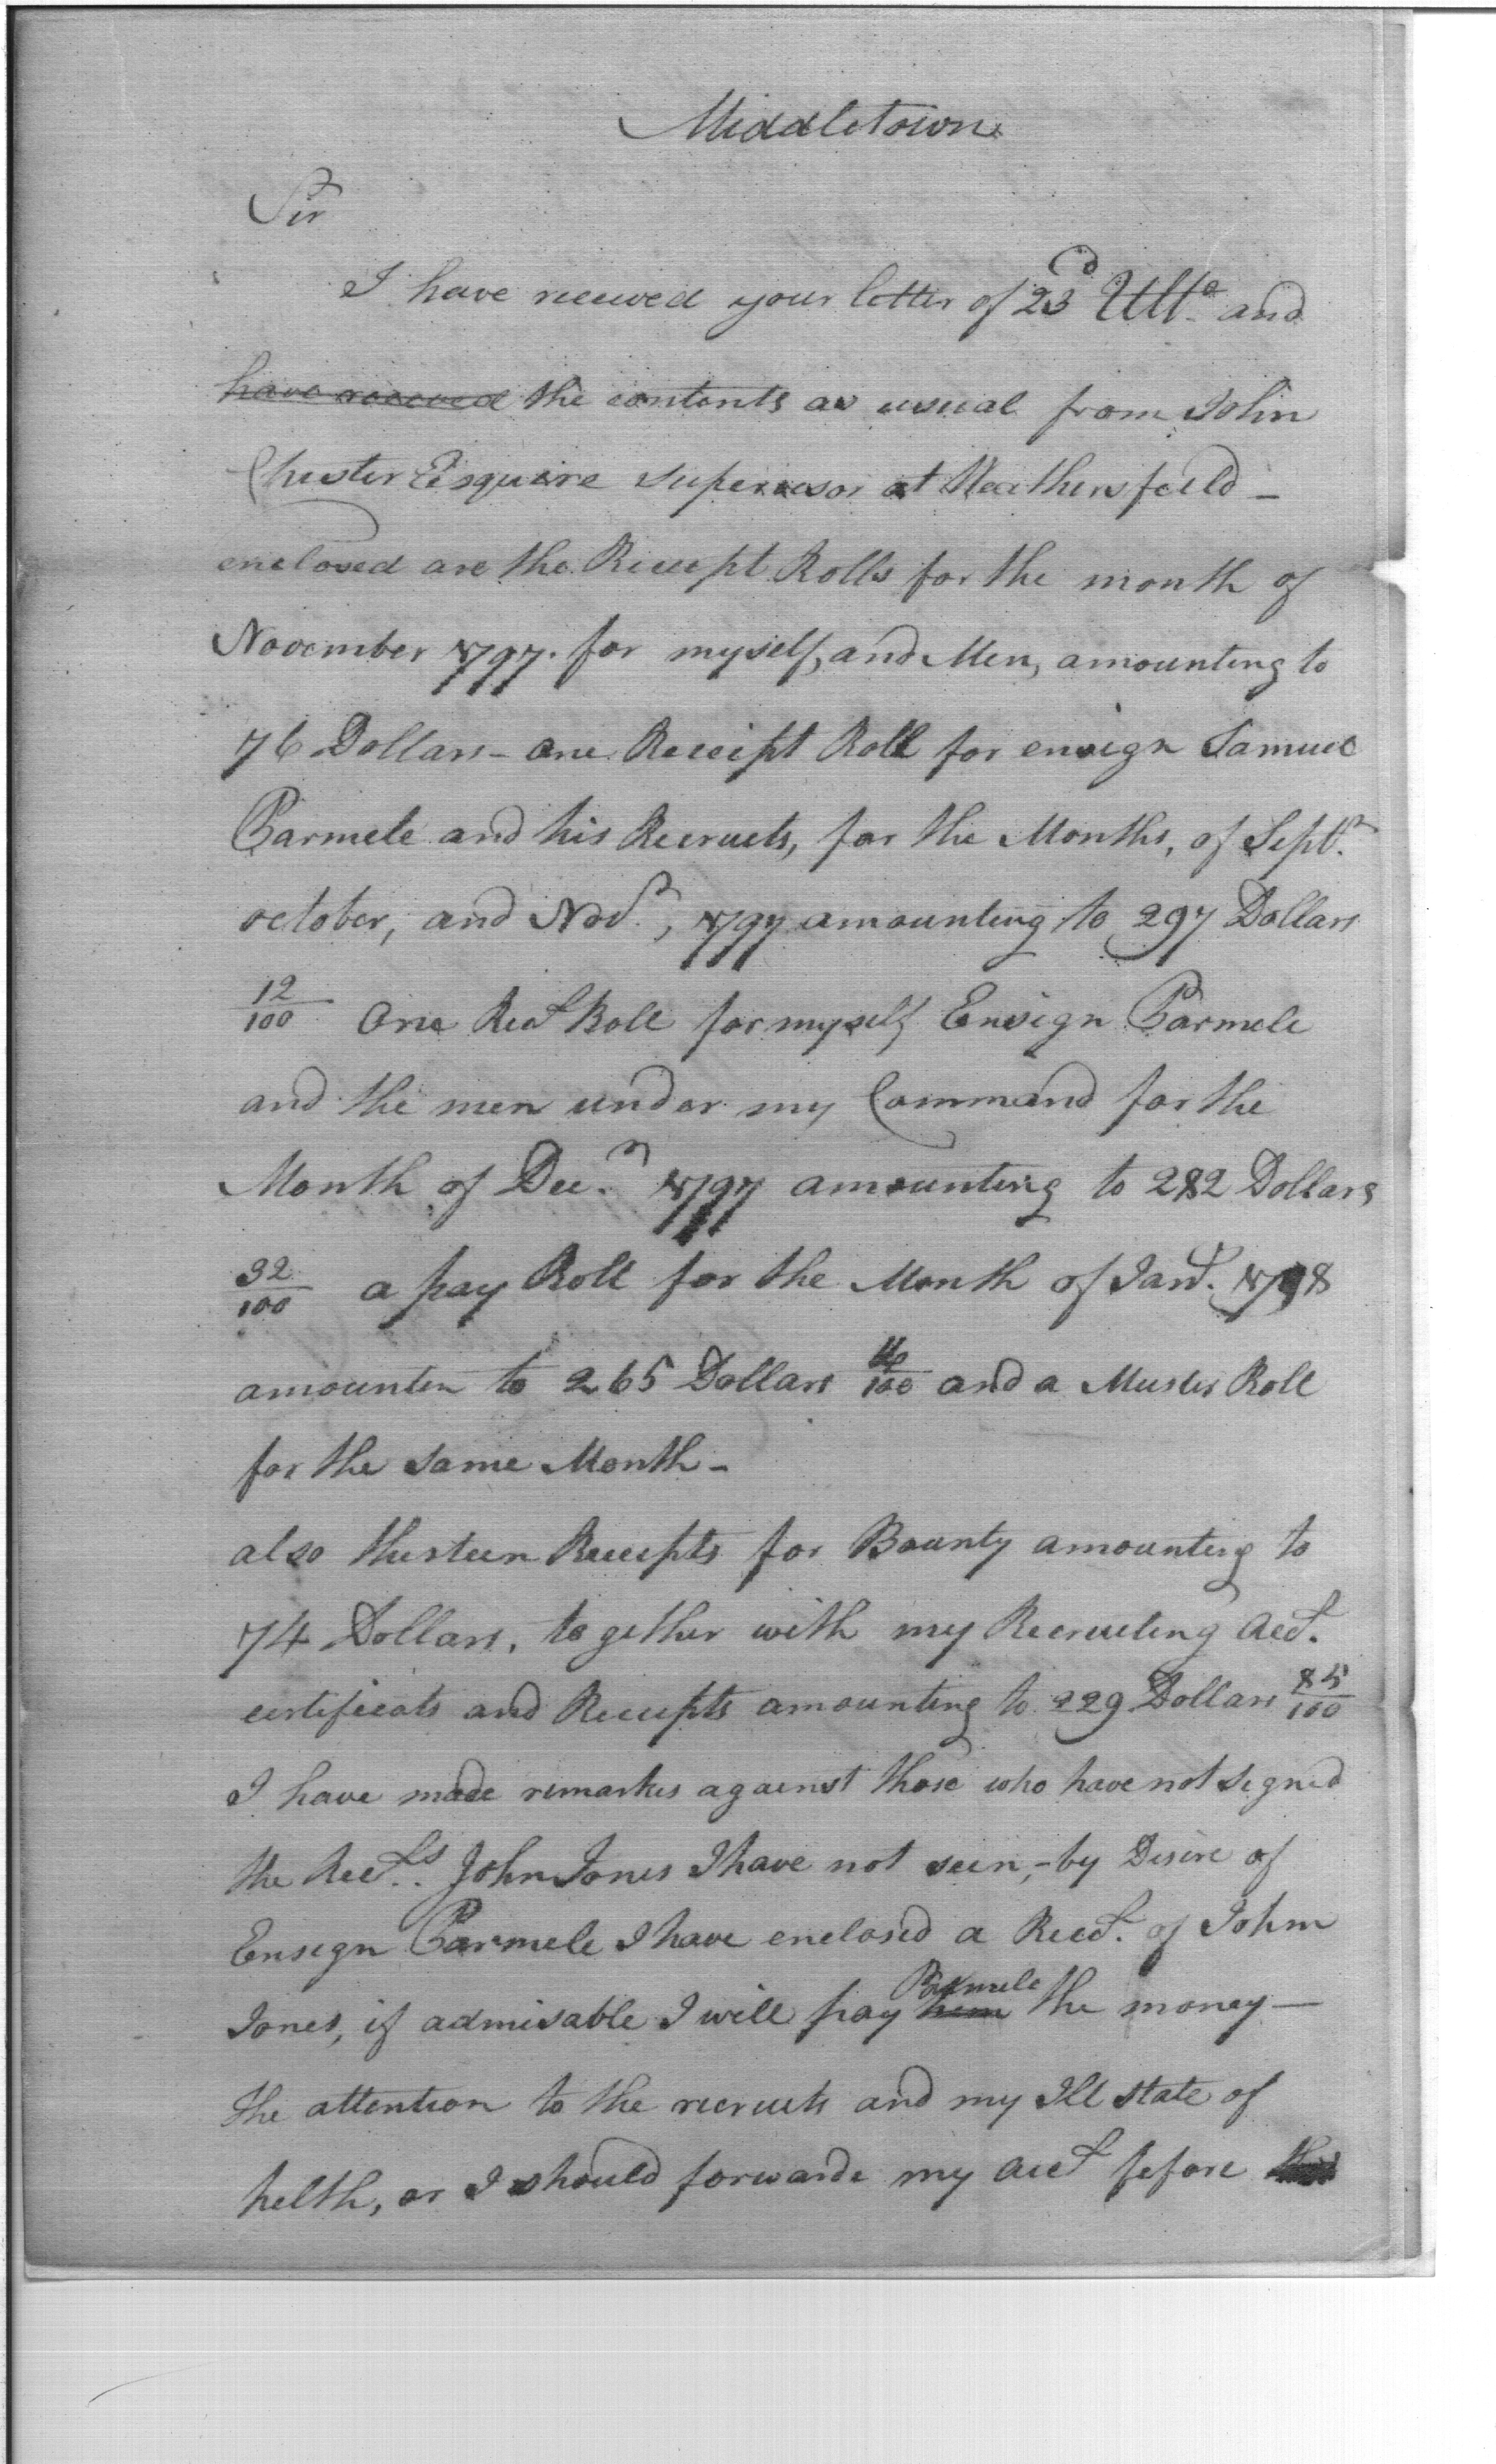 Middletown
Sir
I have received your letter of 23d Ulto. and
have receved the contents as usual from John
Chester Esquire supervisor at Weathersfield -
enclosed are the Receipt Rolls for the month of
November 1797. for myself, and Men, amounting to
76 Dollars - one Receipt Roll for ensign Samuel
Parmele and his Recruets, for the Months, of Septr.
october, and Novr., 1797 amounting to 297 Dollars
12/100 One Rect Roll for myself Ensign Parmele
and the men under my Command for the
Month of Decr. 1797 amounting to 282 Dollars
32/100 a pay Roll for the Month of Jany. 1798
amounten to 265 Dollars /100 and a Muster Roll
for the same Month -
also thirteen Receipts for Bounty amounting to
74 Dollars, together with my Recruiting Acct.
certificats and Receipts amounting to 229 Dollars 85/100
I have made remarkes against those who have not signed
the Recets. John Jones I have not seen, - by Desire of
Ensign Parmele I have enclosed a Recet. of John
Jones, if admisable I will pay him Parmele the money -
the attention to the recruets and my Ill state of
helth, or I should forwarde my acct before